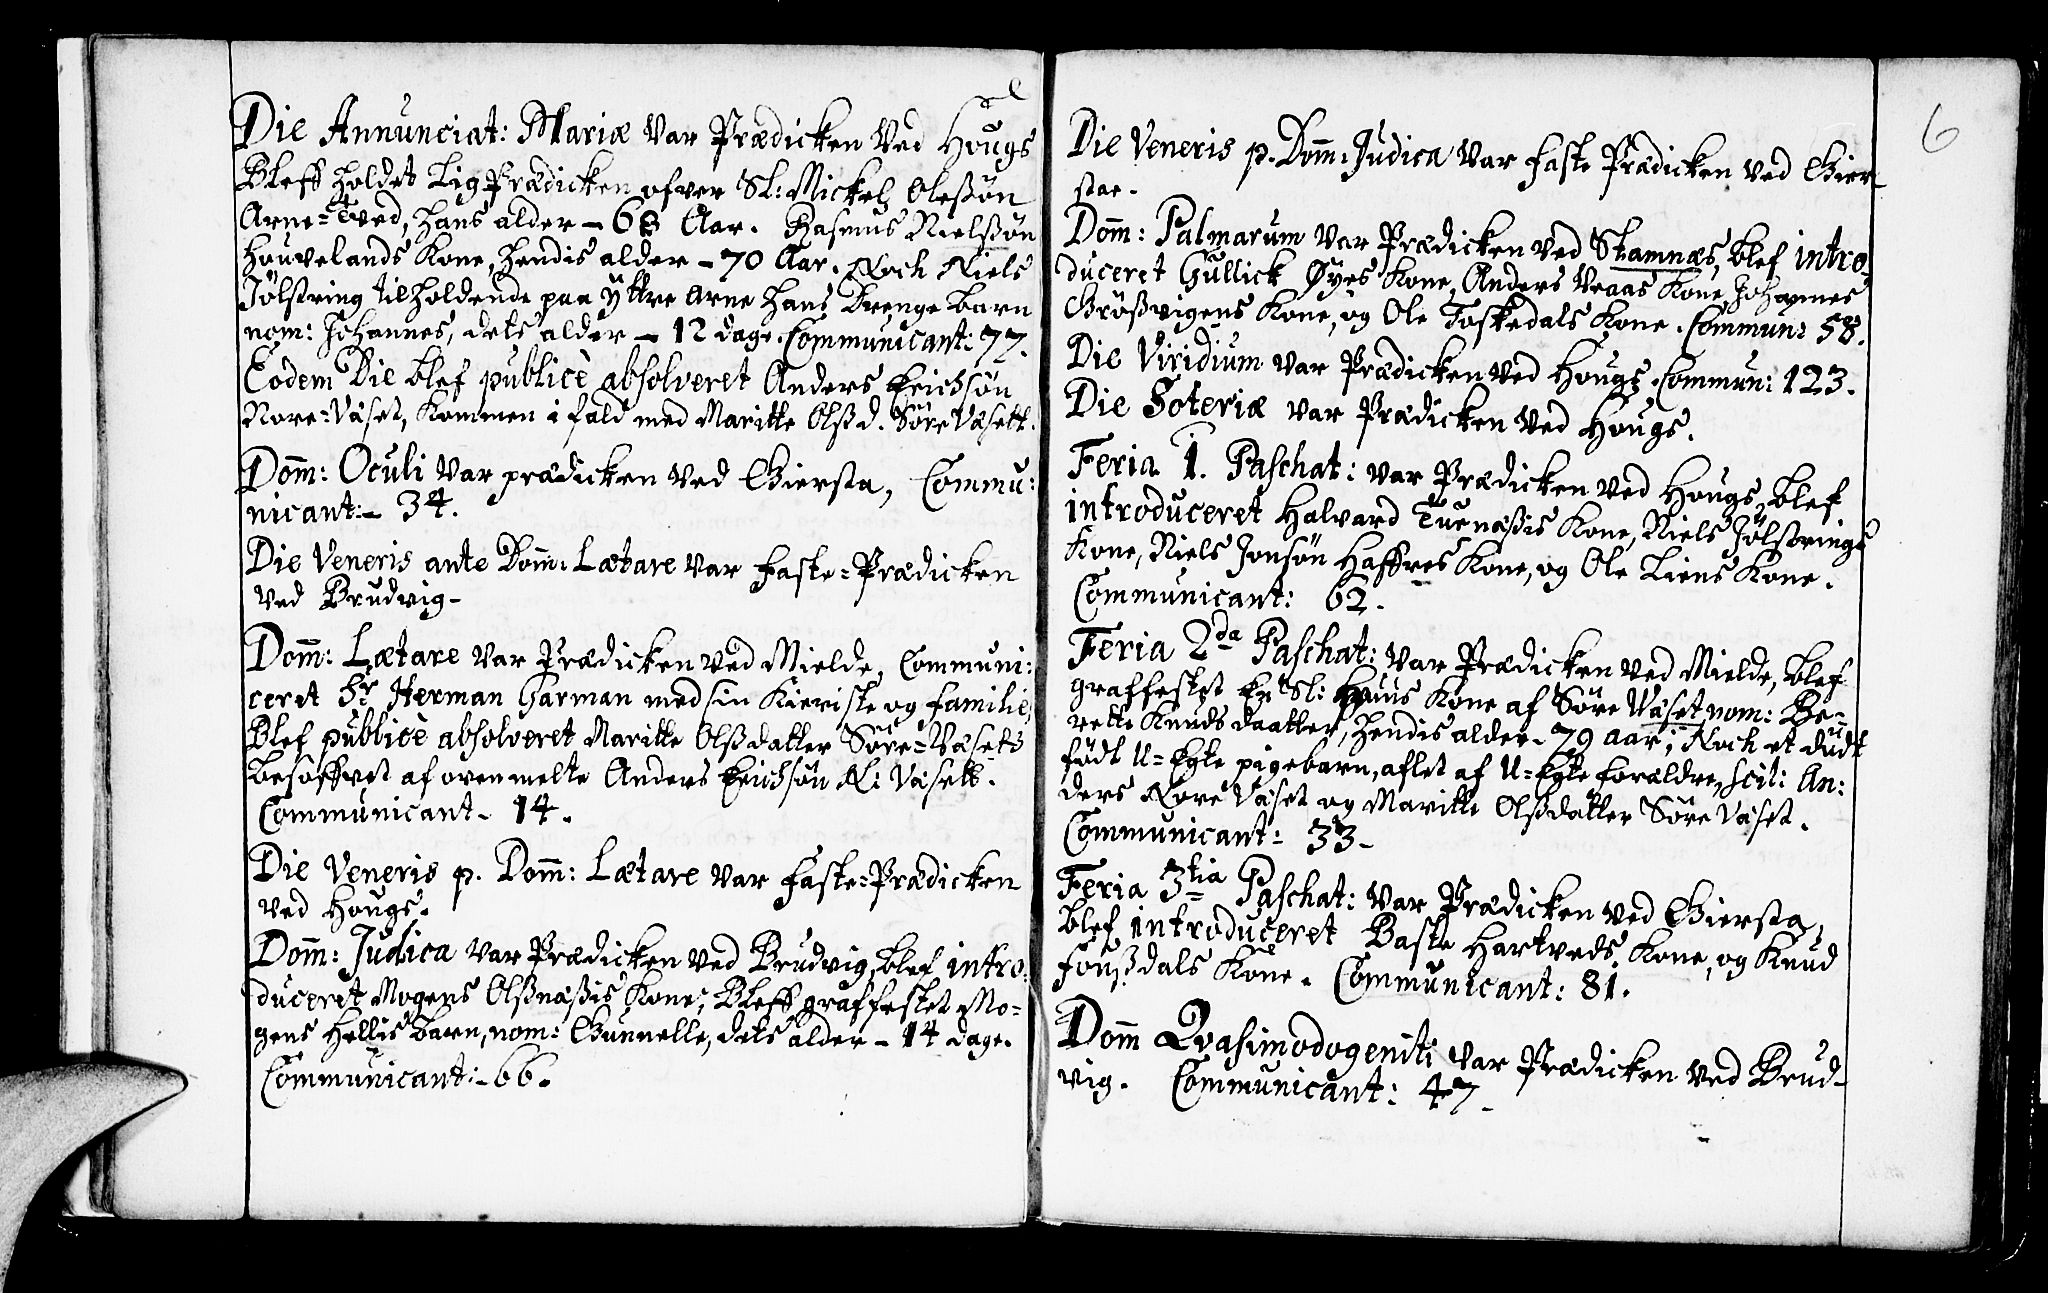 Die Annunciat: Mariæ var Prædicken ved Hougs
Bleff holdet Lig Prædicken ofver Sl: Mickel Olessøn
Arne=Tved, hans alder – 68 Aar. Rasmus Nielssøn
Houvelands Kone, hendis alder – 70 Aar. Noch Niels
Jølstring tilholdende paa Yttre Arne hans Drenge barn
nom: Johannes, dets alder – 12 dage. Communicant: 77.
Eodem Die blef publicè absolveret Anders Erichsøn
Nore=Våset, kommen i fald med Maritte Olss d. Søre Våsett.
Dom̄: Oculi var prædicken ved Giersta, Commu:
nicant:– 34.
Die Veneris ante Dom̄: Lætare var Faste=Prædicken
ved Brudvig –
Dom̄: Lætare var Prædicken ved Mielde, Communi:
ceret Hr Herman Garman med sin Kieriste og Familie,
Blef publicè absolveret Maritte Olssdatter Søre=Våsets
besoffvet af ovenmelte Anders Erichsøn N: Våsett.
Communicant – 14.
Die Veneris p. Dom̄: Lætare var Faste=Prædicken
ved Hougs.
Dom̄: Judica var Prædicken ved Brudvig, blef intro:
duceret Mogens Olssnæssis Kone; Bleff graffestet Mo=
gens Hellis barn, nom: Gunnelle, dets alder – 14 dage.
Communicant:– 66.
6
Die Veneris p. Dom̄: Judica var Faste Prædicken ved Gier=
stae.
Dom̄: Palmarum var Prædicken ved Stamnæs, blef intro=
duceret Gullick Øyes Kone, Anders Vraas Kone, Johannes
Grössvigens Kone, og Ole Toskedals Kone. Commun: 58.
Die Viridium var Prædicken ved Hougs. Commun: 123.
Die Soteriæ var Prædicken ved Hougs.
Feria 1. Paschat: var Prædicken ved Hougs, blef
introduceret Halvard Tuenæssis Kone, Niels Jølstrings
Kone, Niels Jonsøn Haffres Kone, og Ole Liens Kone.
Communicant: 62.
Feria 2da Paschat: var Prædicken ved Mielde, blef
graffestet Sl: Kone af Søre Våset nom: Be=
rette Knudsdaatter, hendis alder – 79 aar; Noch et dødt
født U=Egte pigebarn, aflet af U=Egte forældre, scil: An:
ders Nore Våset og Maritte Olssdatter Søre Våset.
Communicant: 33 –
Feria 3tia Paschat: var Prædicken ved Giersta,
blef introduceret Baste Hartveds Kone, og Knud
Foussdals Kone. Communicant: 81.
Dom̄ Qvasimodogeniti var Prædicken ved Brud=
vig. Communicant: 47.